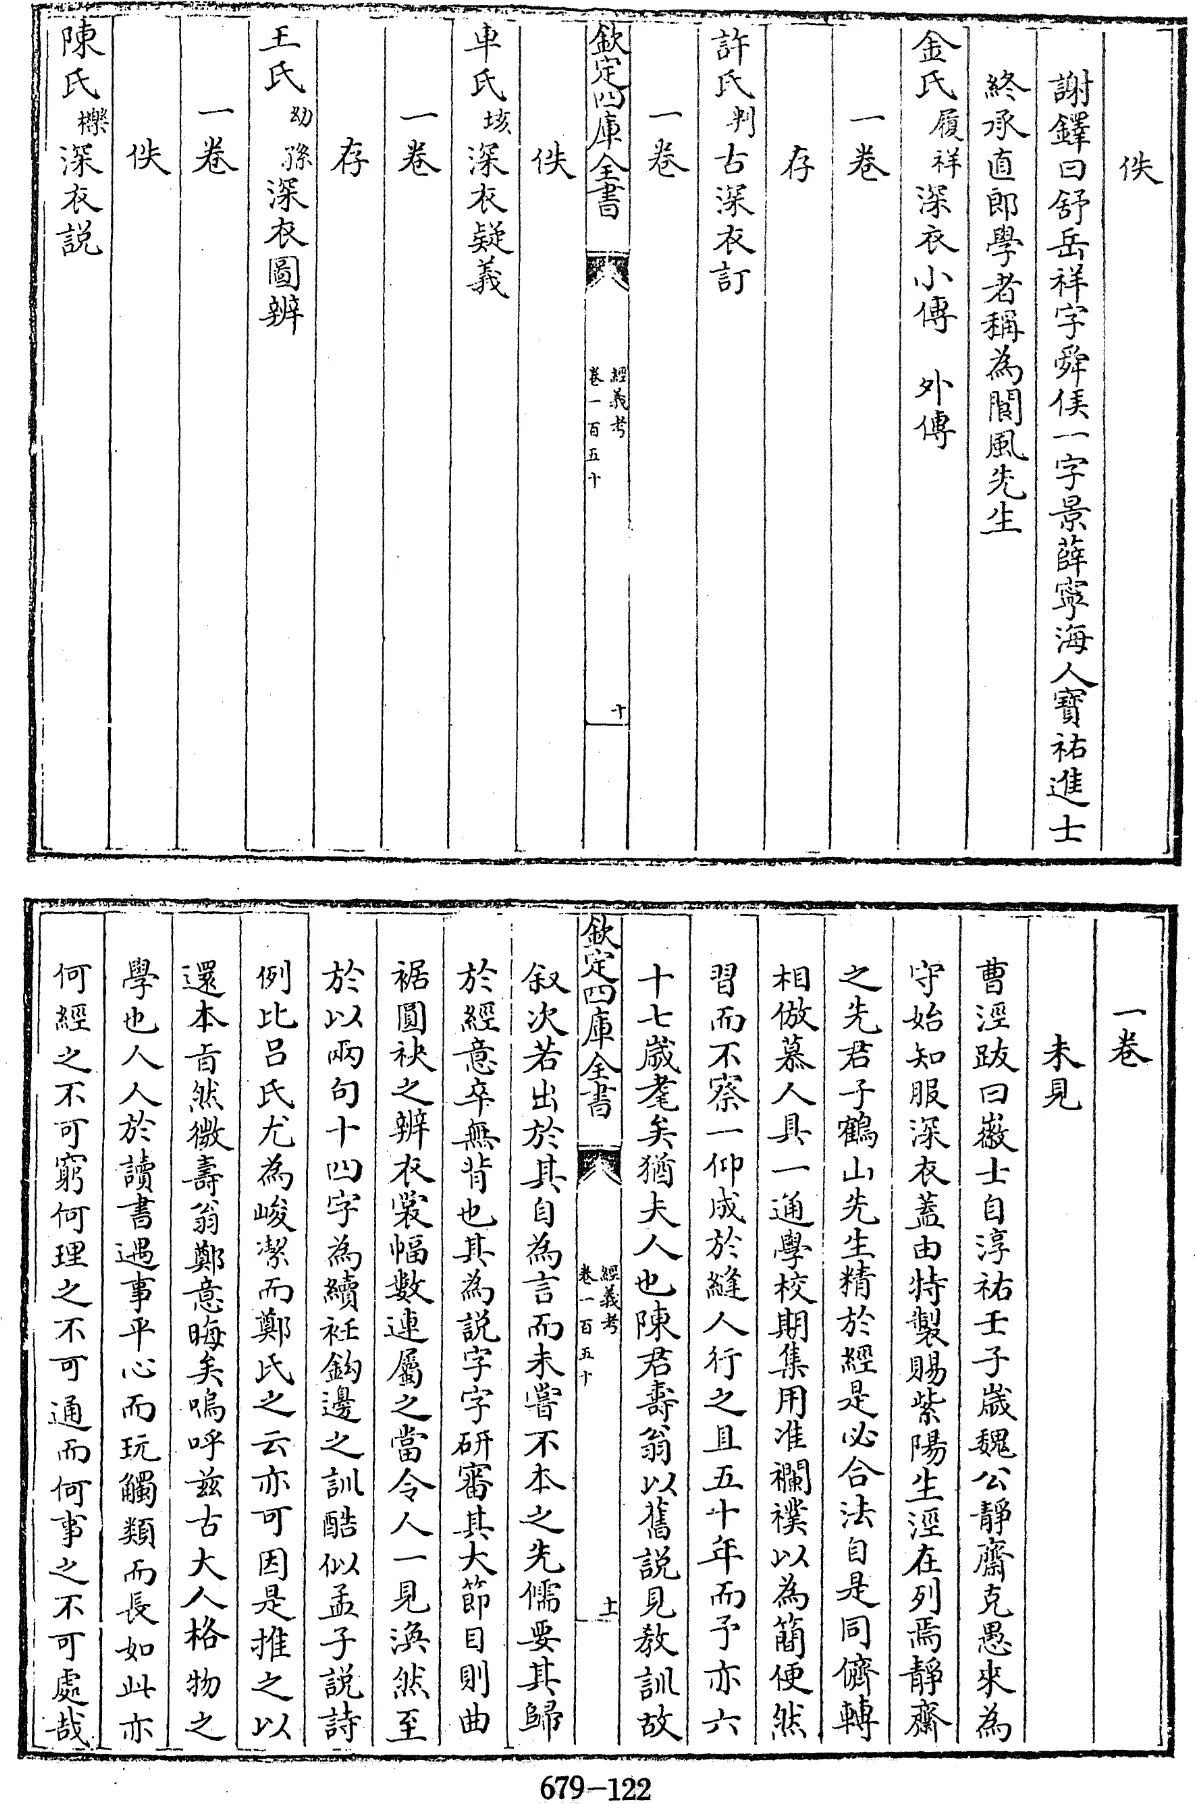 佚
謝鐸曰舒岳祥字舜侯一字景薛寧海人寶祐進士
終承直郎學者稱為閬風先生
金氏履祥深衣小傳　外傳
一卷
存
許氏判古深衣訂
一卷
欽定四庫全書
經義考
卷一百五十
十
佚
車氏垓深衣疑義
一卷
存
王氏幼孫深衣圖辨
一卷
佚
陳氏櫟深衣説
一卷
未見
曹涇跋曰嶶士自淳祐壬子歲魏公靜齋克愚來為
守始知服深衣蓋由特製賜紫陽生涇在列焉靜齋
之先君子鶴山先生精於經是必合法自是同儕轉
相倣慕人具一通學校期集用准襴襆以為簡便然
習而不察一仰成於縫人行之且五十年而予亦六
十七歲耄矣猶夫人也陳君壽翁以舊説見教訓故
欽定四庫全書
經義考
卷一百五十
十一
叙次若出於其自為言而未嘗不本之先儒要其歸
於經意卒無背也其為説字字研審其大節目則曲
裾圓袂之辨衣裳幅數連屬之當令人一見渙然至
於以兩句十四字為續衽鈎邊之訓酷似孟子説詩
例比吕氏尤為峻潔而鄭氏之云亦可因是推之以
還本旨然微壽翁鄭意晦矣嗚呼兹古大人格物之
學也人人於讀書遇事平心而玩觸類而長如此亦
何經之不可窮何理之不可通而何事之不可處哉
679-122